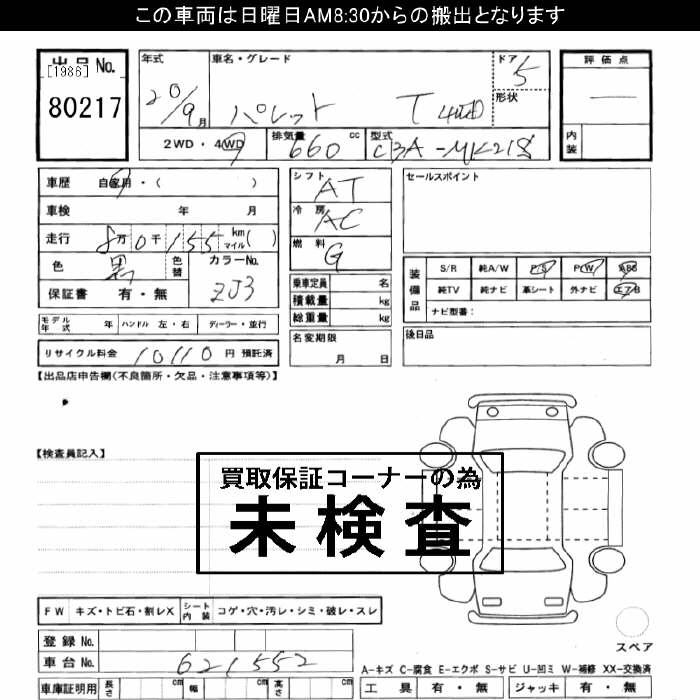 この車両は日曜日AM8:30からの搬出となります
出品No.
[1986]
80217
年式
20/9月
車名・グレード
パレット T 4WD
ドア
5
形状
2WD・4WD
排気量
660 cc
型式
CBA-MK21S
評価点
内装
車歴 自家用・( )
車検 年 月
走行 8万0千155 km マイル( )
色 黒 色替 カラーNo.
ZJ3
保証書 有・無
シフト
AT
冷房
AC
燃料
G
セールスポイント
装備品
S/R 純A/W P/S P/W ABS
純TV 純ナビ 革シート 外ナビ エアB
ナビ型番:
乗車定員 名
積載量 kg
総重量 kg
モデル年式 年 ハンドル 左・右 ディーラー・並行
リサイクル料金 10110円 預託済
名変期限
月 日
後日品
【出品店申告欄(不良箇所・欠品・注意事項等)】
【検査員記入】
買取保証コーナーの為
未検査
FW キズ・トビ石・割レX シート内装 コゲ・穴・汚レ・シミ・破レ・スレ
スペア
登録No.
車台No. 621552
A-キズ C-腐食 E-エクボ S-サビ U-凹ミ W-補修 XX-交換済
車庫証明用 長さ cm 幅 cm 高さ cm
工具 有・無 ジャッキ 有・無